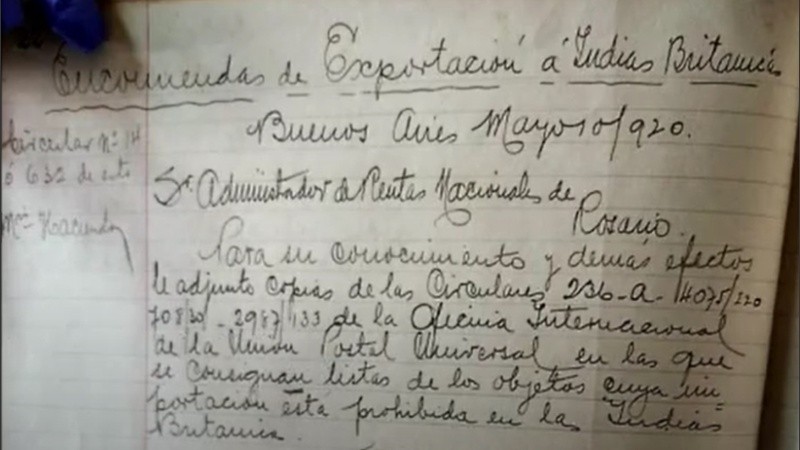 Encomiendas de Exportación á Indias Britanicas
Buenos Aires Mayo 10/920.
Circular Nº 14
ó 632 de este
Mº Hacienda
Sr. Administrador de Rentas Nacionales de
Rosario.
Para su conocimiento y demás efectos
le adjunto copias de las Circulares 236-A-14075/220
708/20 - 2987/133 de la Oficina Internacional
de la Unión Postal Universal en las que
se consignan listas de los objetos cuya im-
portación está prohibida en las Indias
Britania.